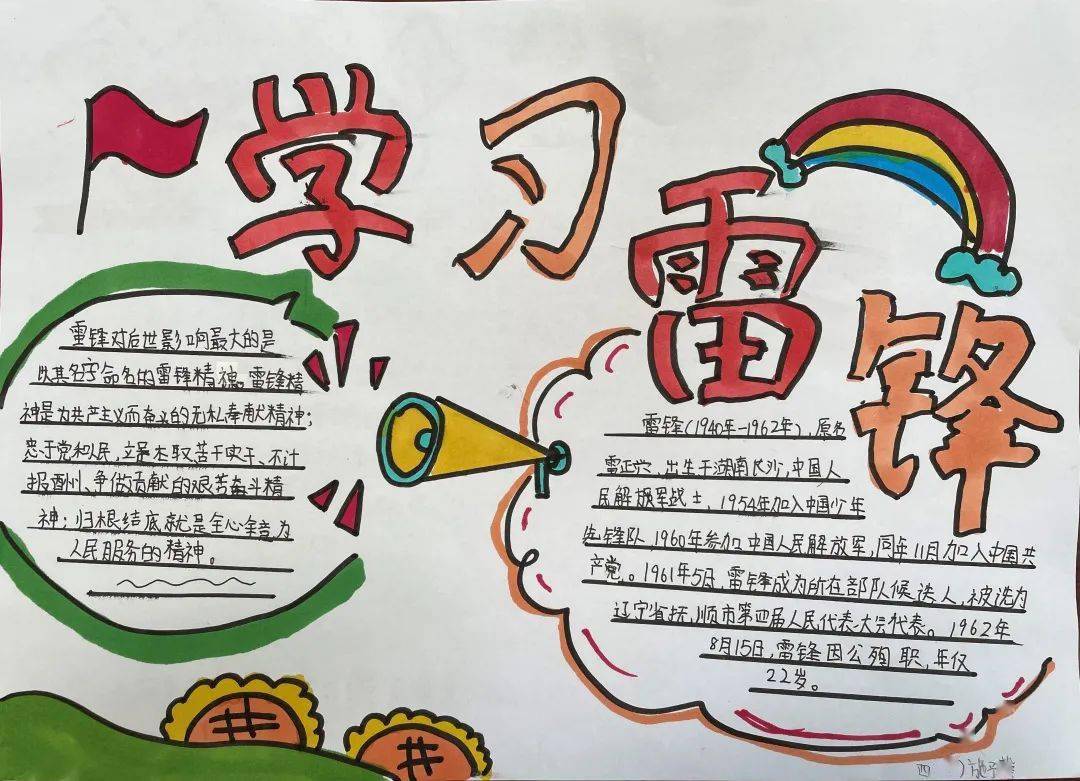 学习
雷锋
雷锋对后世影响最大的是
以其名字命名的雷锋精神。雷锋精
神是为共产主义而奋斗的无私奉献精神；
忠于党和民，立足本职苦干实干、不计
报酬、争做贡献的艰苦奋斗精
神；归根结底就是全心全意为
人民服务的精神。
雷锋（1940年—1962年），原名
雷正兴，出生于湖南长沙，中国人
民解放军战士，1954年加入中国少年
先锋队，1960年参加中国人民解放军，同年11月加入中国共
产党。1961年5日，雷锋成为所在部队候选人，被选为
辽宁省抚顺市第四届人民代表大会代表。1962年
8月15日，雷锋因公殉职，年仅
22岁。
四